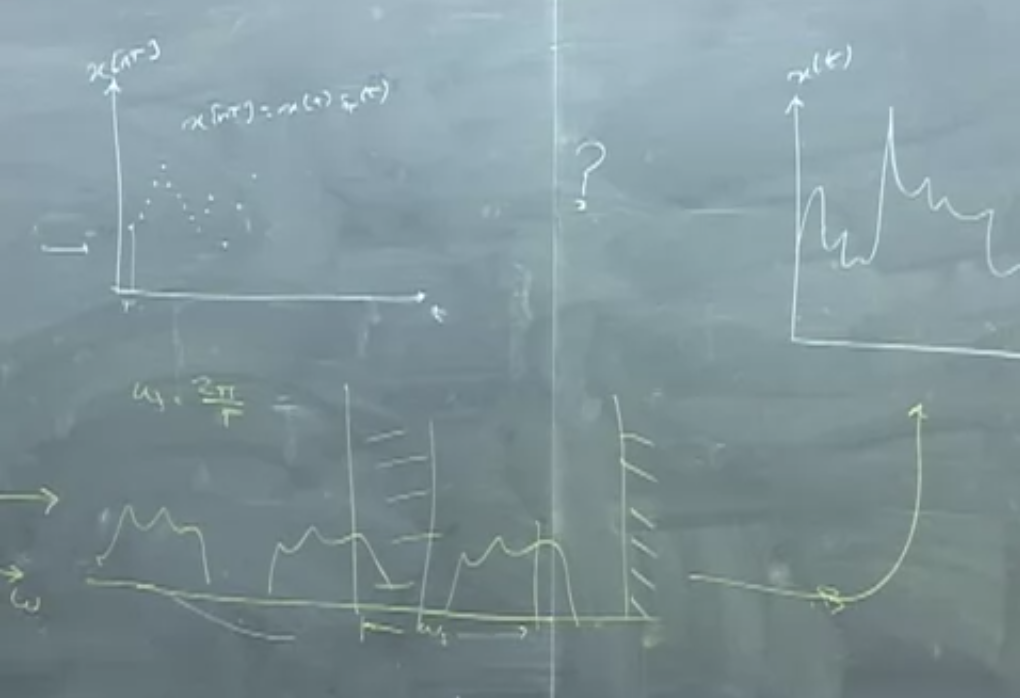 x[nT]
x[nT] = x(t) δ_T(t)
?
x(t)
T
t
ω_s = 2π/T
ω
ω_s